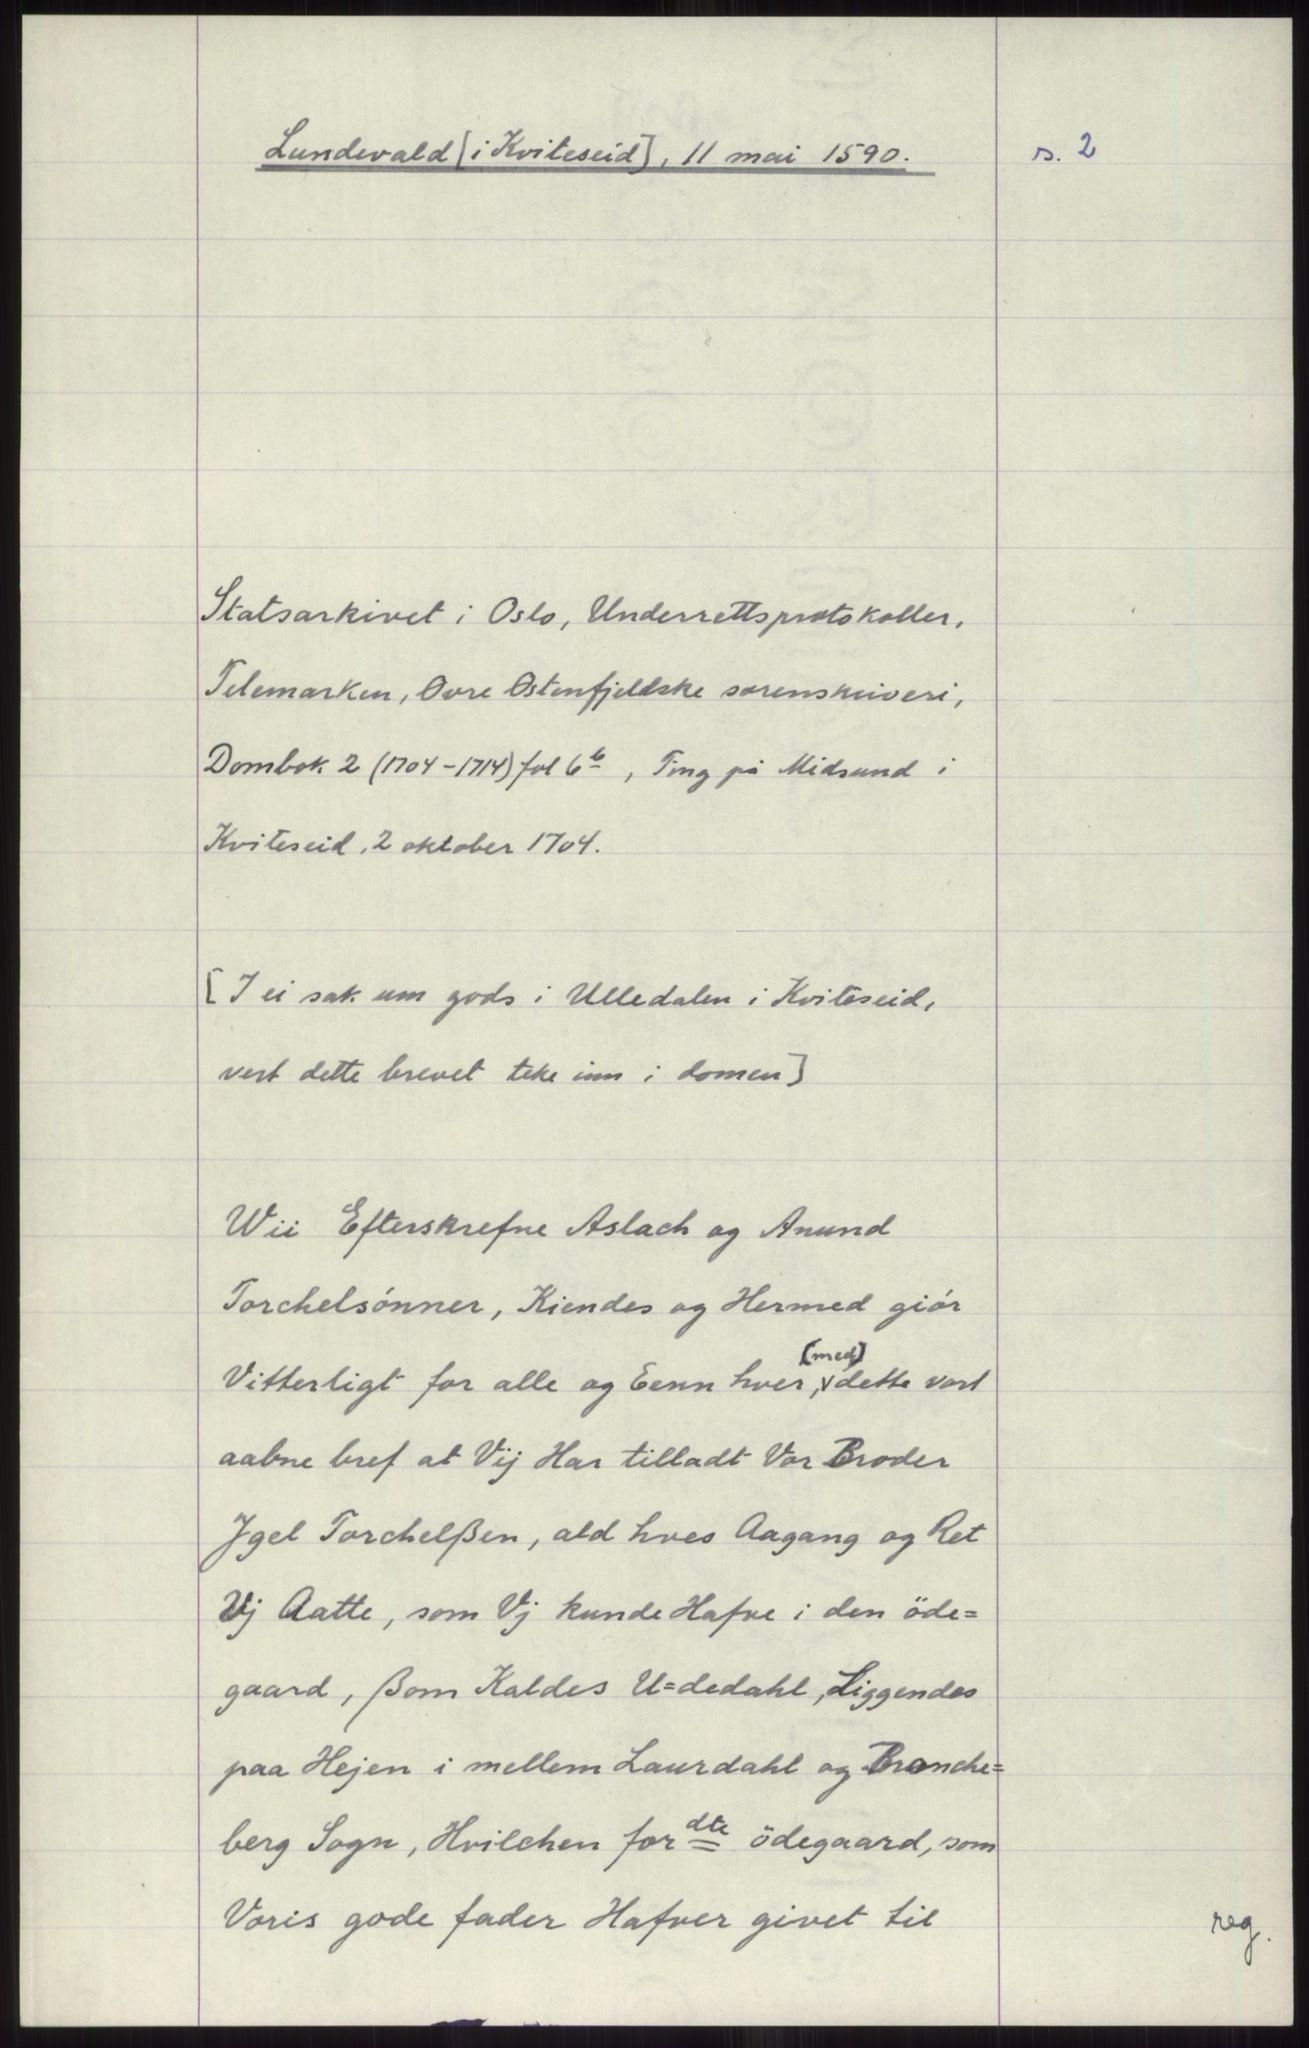 Lundevald [i Kviteseid], 11 mai 1590.
s. 2
Statsarkivet i Oslo, Underrettsprotokoller,
Telemarken, Øvre Østenfjeldske sorenskriveri,
Dombok 2 (1704-1714) fol 6b, Ting på Midsund i
Kviteseid, 2 oktober 1704.
[I ei sak um gods i Ulledalen i Kviteseid,
vert dette brevet teke inn i domen]
Wii Efterskrefne Aslach og Anund
Torchelsónner, Kiendes og Hermed giór
[med]
Vitterligt for alle og Eenn hver, v dette vort
aabne bref at Vij Har tilladt Vor Broder
Jgel Torchelßen, ald hves Aagang og Ret
Vj Aatte, som Vj kunde Hafve i den öde=
gaard, ßom Kaldes U=dedahl, Liggendes
paa Hejen i mellem Laurdahl og Bronche=
berg Sogn, Hvilchen fordte ödegaard, som
Voris gode fader Hafver givet til
reg.